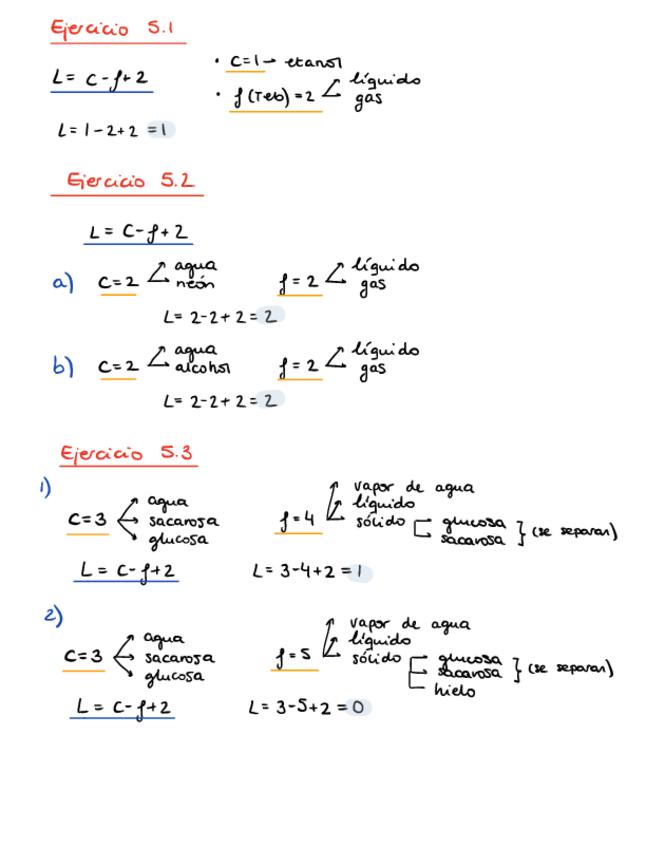 Ejercicio 5.1
L = C - f + 2
• C = 1 → etanol
• f (Teb) = 2 líquido
gas
L = 1 - 2 + 2 = 1
Ejercicio 5.2
L = C - f + 2
a) C = 2 agua
neón
f = 2 líquido
gas
L = 2 - 2 + 2 = 2
b) C = 2 agua
alcohol
f = 2 líquido
gas
L = 2 - 2 + 2 = 2
Ejercicio 5.3
1)
C = 3 agua
sacarosa
glucosa
f = 4 vapor de agua
líquido
sólido glucosa
sacarosa } (se separan)
L = C - f + 2
L = 3 - 4 + 2 = 1
2)
C = 3 agua
sacarosa
glucosa
f = 5 vapor de agua
líquido
sólido glucosa
sacarosa } (se separan)
hielo
L = C - f + 2
L = 3 - 5 + 2 = 0